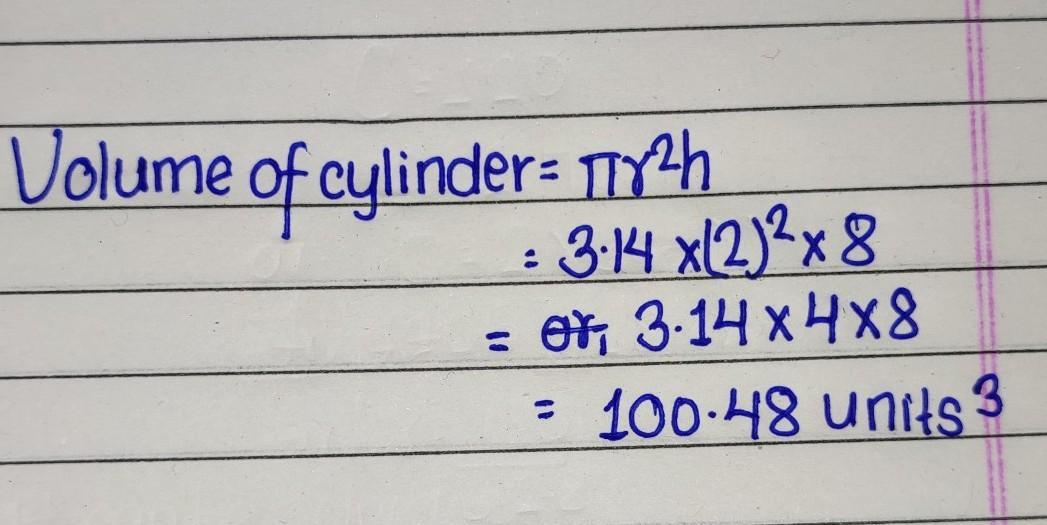 Volume of cylinder = πr²h
= 3·14 x (2)² x 8
= or, 3·14 x 4 x 8
= 100·48 units³